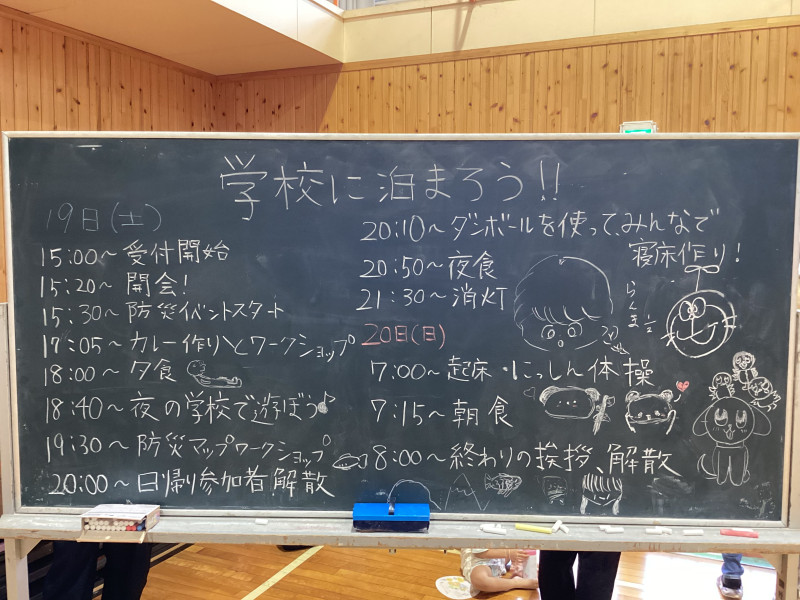 学校に泊まろう!!
19日(土)
15:00～受付開始
15:20～開会!
15:30～防災イベントスタート
17:05～カレー作りとワークショップ
18:00～夕食
18:40～夜の学校で遊ぼう♪
19:30～防災マップワークショップ
20:00～日帰り参加者解散
20:10～ダンボールを使って、みんなで
寝床作り!
20:50～夜食
21:30～消灯
20日(日)
7:00～起床・にっしん体操
7:15～朝食
8:00～終わりの挨拶、解散
らんま1/2